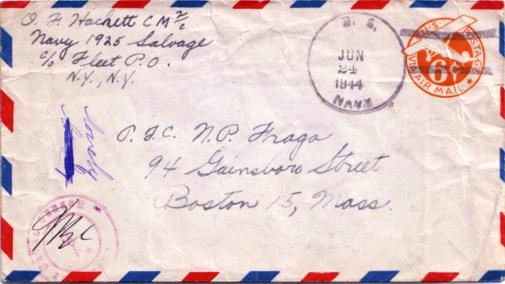 O. F. Hackett CM 2/c
Navy 1925 Salvage
c/o Fleet P.O.
N.Y., N.Y.
U. S.
JUN
24
1944
NAVY
U.S. POSTAGE
6c
VIA AIR MAIL
P.F.C. N.P. Fraga
94 Gainsboro Street
Boston 15, Mass.